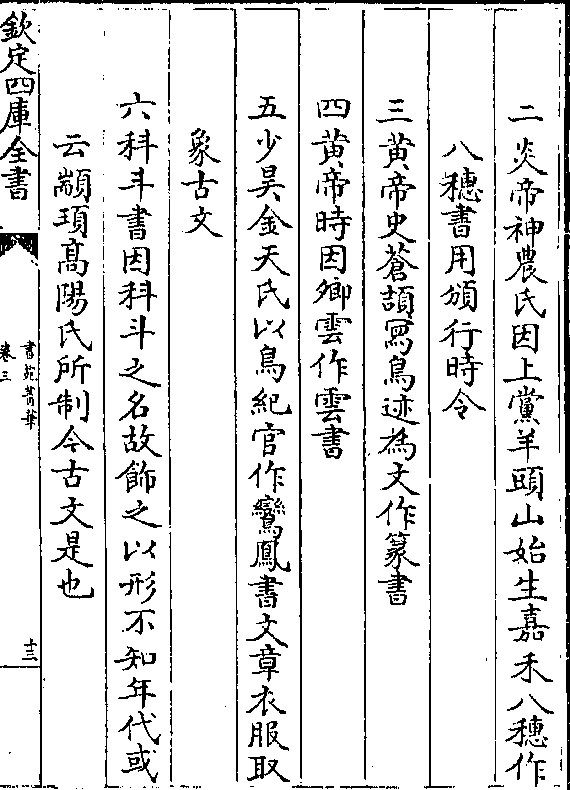 二炎帝神農氏因上黨羊頭山始生嘉禾八穗作
八穗書用頒行時令
三黄帝史蒼頡冩鳥迹為文作篆書
四黄帝時因卿雲作雲書
五少昊金天氏以鳥紀官作鸞鳳書文章衣服取
象古文
六科斗書因科斗之名故飾之以形不知年代或
云顓頊髙陽氏所制今古文是也
欽定四庫全書
書苑菁華
卷三
十三